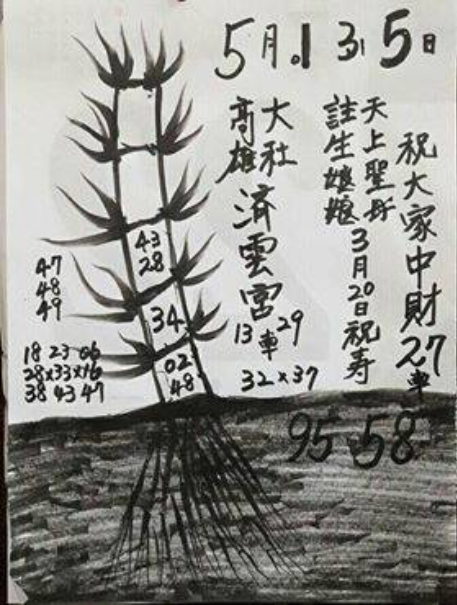 5月.1 3 5日
祝大家中財27車
天上聖母
註生娘娘
3月20日祝寿
大社
高雄
済雲宮
13車29
32x37
43
28
34
02
48
47
48
49
18 23 06
28x33x16
38 43 47
95 58